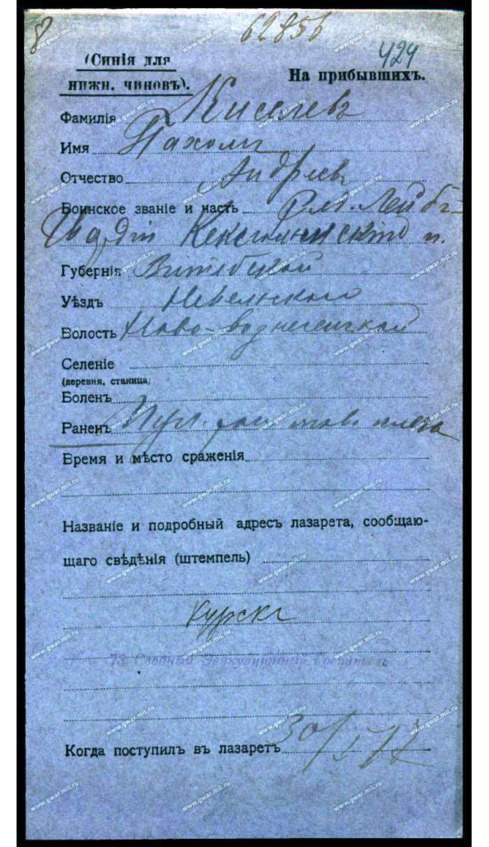 8 62856
424
(Синія для
нижн. чиновъ).
На прибывшихъ.
Фамилія Киселевъ
Имя Пахомъ
Отчество Андреевъ
Воинское званіе и часть Ряд. Лейбъ-
Гвардіи Кексгольмскаго п.
Губернія Витебской
Уѣздъ Невельского
Волость Ново-
Селеніе
(деревня, станица)
Боленъ
Раненъ Пул. лѣв. плеча
Время и мѣсто сраженія
Названіе и подробный адресъ лазарета, сообщаю-
щаго свѣдѣнія (штемпель)
Курскъ
73 Сводный Эвакуаціонный Госпиталь
Когда поступилъ въ лазаретъ 30/
www.gwar.mil.ru